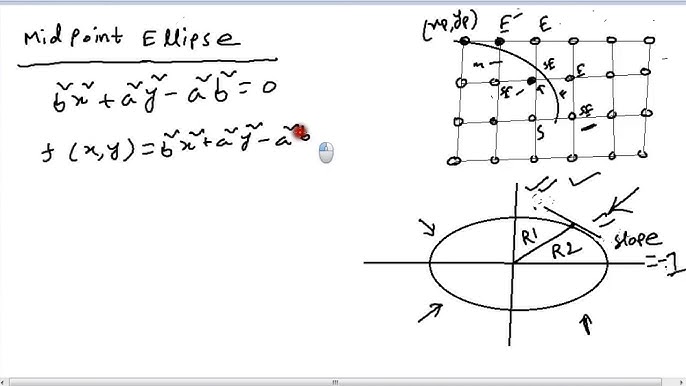 Midpoint Ellipse
b²x² + a²y² - a²b² = 0
f (x,y) = b²x² + a²y² - a²b
(xp,yp) E E
m SE E
SE
S SE
R1
R2
slope
= -1